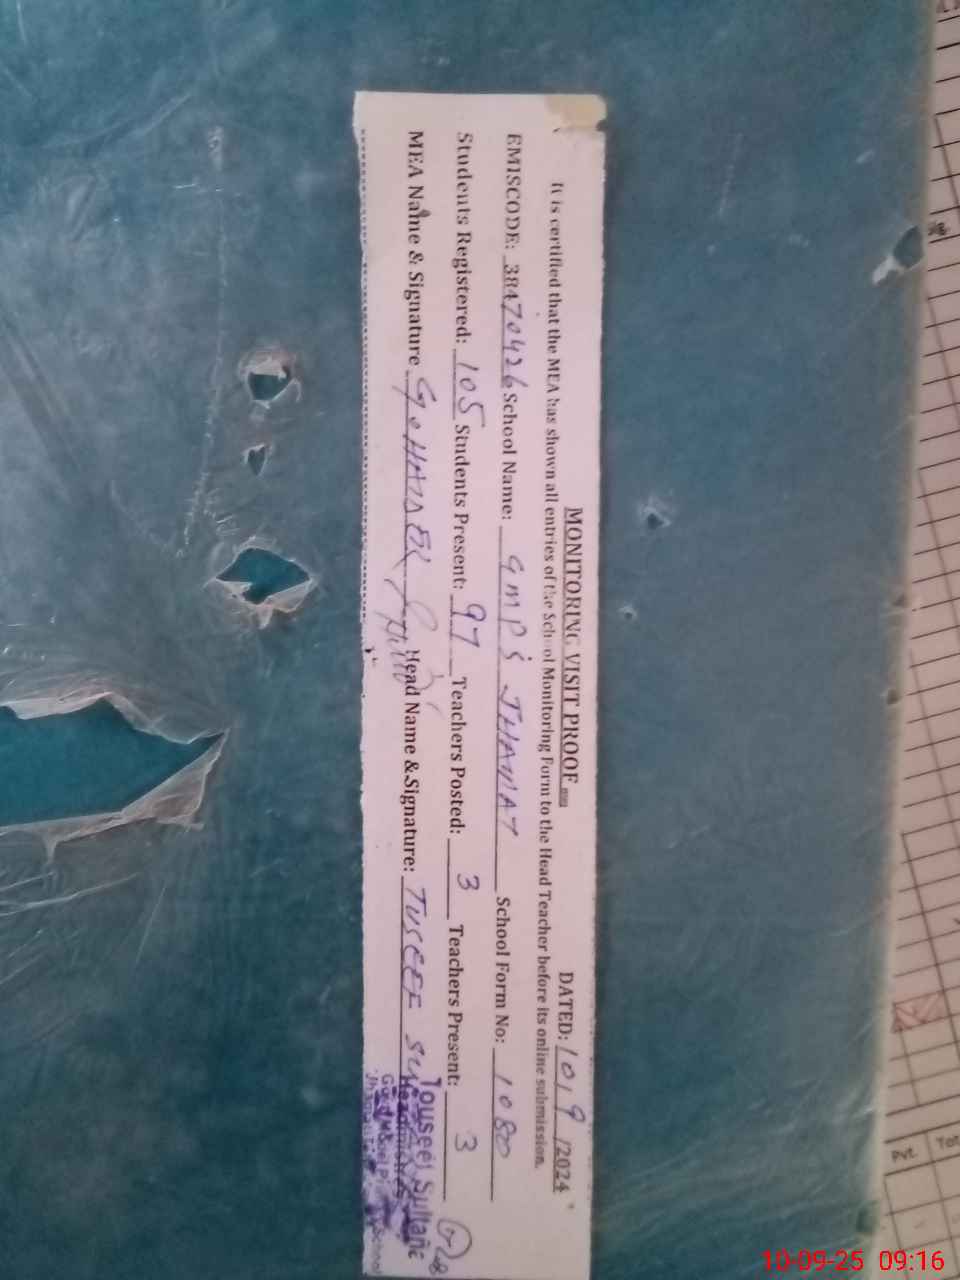 MONITORING VISIT PROOF DATED: 10/9/2024
It is certified that the MEA has shown all entries of the School Monitoring Form to the Head Teacher before its online submission.
EMISCODE: 38470426 School Name: GMPS JHAMAT School Form No: 1080
Students Registered: 105 Students Present: 97 Teachers Posted: 3 Teachers Present: 3
MEA Name & Signature G. HAIDER Head Name & Signature: TUSEEF
Touseef Sultana
Headmistress
Govt. M School
Sig.
Pvt.
Tot
10-09-25 09:16